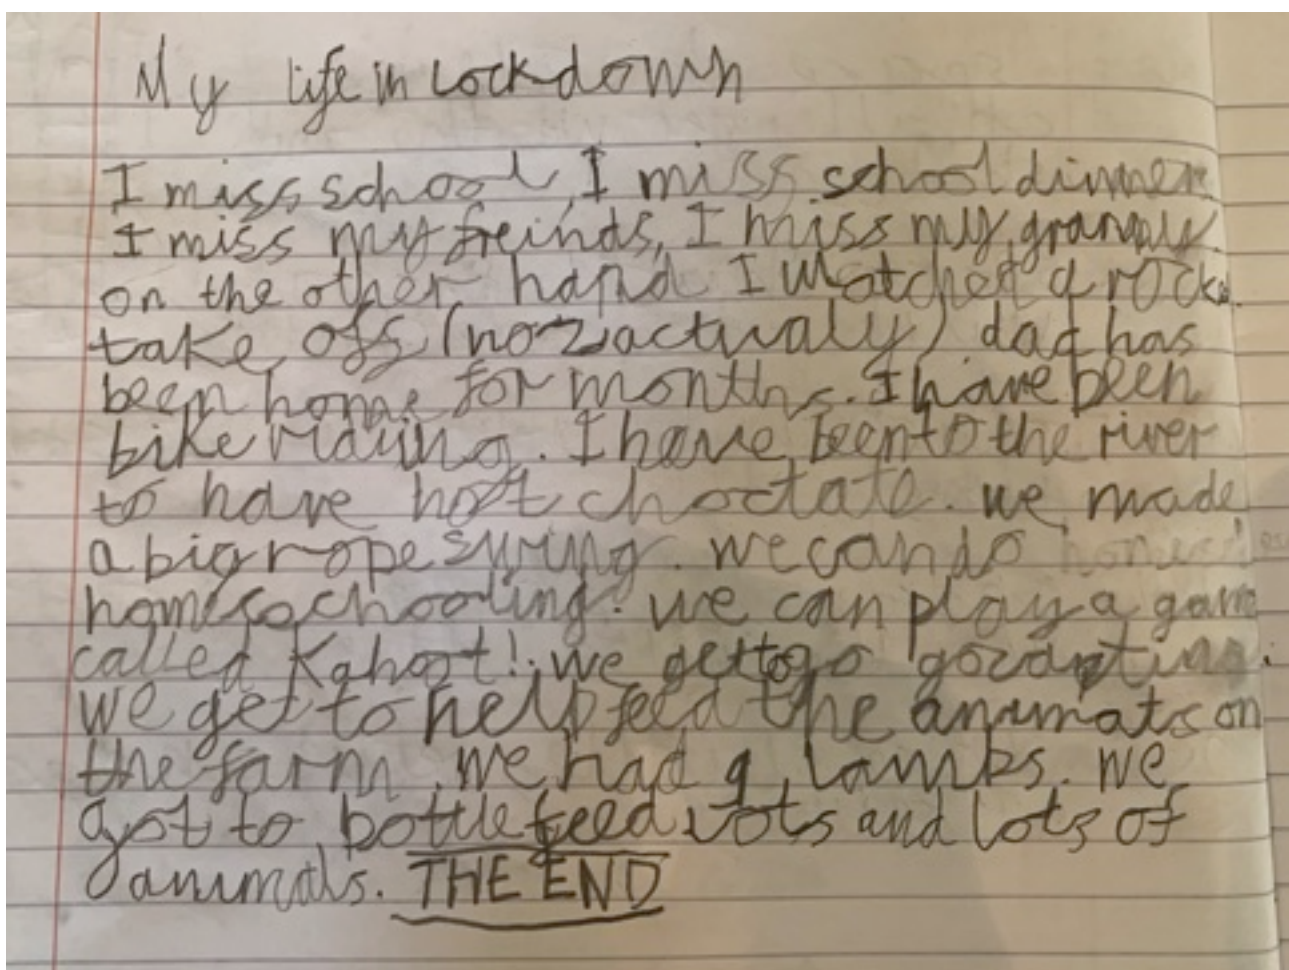 My life in lockdown
I miss school, I miss school dinner
I miss my freinds, I miss my granny.
on the other hand I watched a rocket
take off (not actualy) dad has
been home for months. I have been
bike riding. I have been to the river
to have hot choctate. we made
a big rope swing. we can do
homescchooling. we can play a game
called Kahoot!. we get to go
we get to help feed the animals on
the farm. we had 9 lambs. we
got to bottle feed lots and lots of
animals. THE END